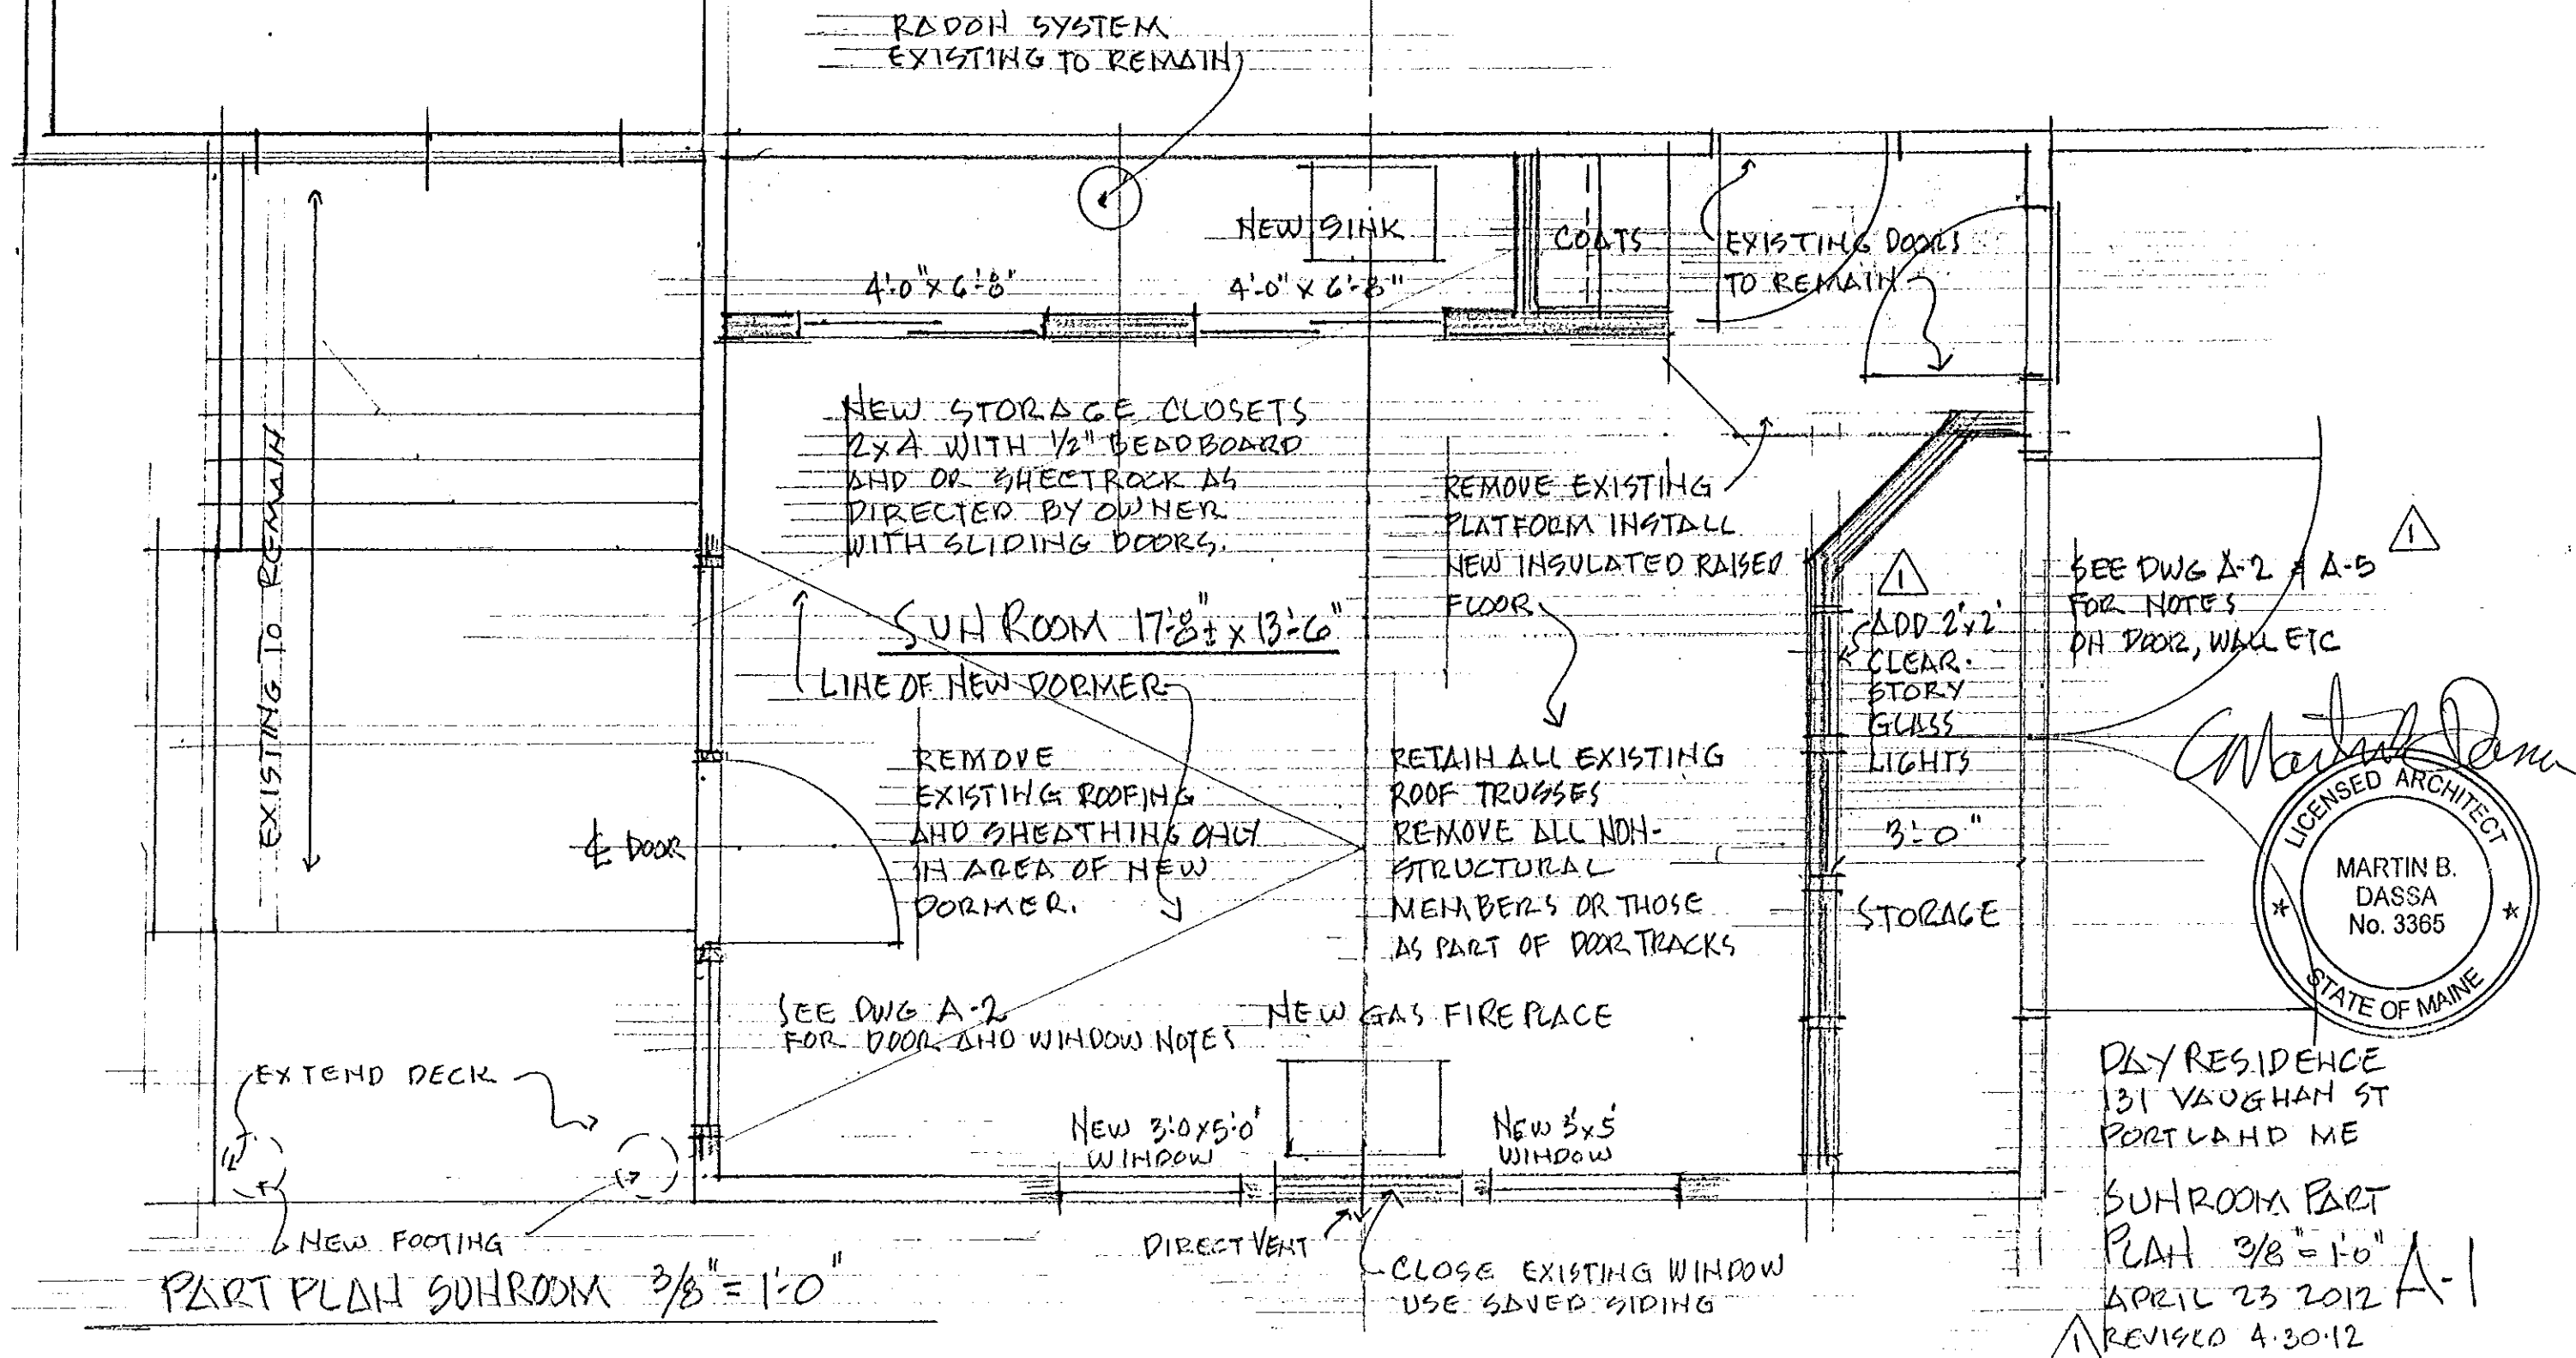 RADON SYSTEM
EXISTING TO REMAIN
NEW SINK
COATS
EXISTING DOORS
TO REMAIN
4'-0" x 6'-8"
4'-0" x 6'-8"
EXISTING TO REMAIN
NEW STORAGE CLOSETS
2x4 WITH 1/2" BEADBOARD
AND OR SHEETROCK AS
DIRECTED BY OWNER
WITH SLIDING DOORS.
REMOVE EXISTING
PLATFORM INSTALL
NEW INSULATED RAISED
FLOOR
SUN ROOM 17'-8"± x 13'-6"
LINE OF NEW DORMER
1
ADD 2'x2'
CLEAR-
STORY
GLASS
LIGHTS
3'-0"
STORAGE
1
SEE DWG A-2 & A-5
FOR NOTES
ON DOOR, WALL ETC
REMOVE
EXISTING ROOFING
AND SHEATHING ONLY
IN AREA OF NEW
DORMER.
RETAIN ALL EXISTING
ROOF TRUSSES
REMOVE ALL NON-
STRUCTURAL
MEMBERS OR THOSE
AS PART OF DOOR TRACKS
℄ DOOR
Martin B Dassa
LICENSED ARCHITECT
MARTIN B.
DASSA
No. 3365
STATE OF MAINE
SEE DWG A-2
FOR DOOR AND WINDOW NOTES
NEW GAS FIREPLACE
EXTEND DECK
NEW 3'-0x5'-0"
WINDOW
NEW 3'x5'
WINDOW
NEW FOOTING
DIRECT VENT
CLOSE EXISTING WINDOW
USE SAVED SIDING
PART PLAN SUNROOM 3/8" = 1'-0"
DAY RESIDENCE
131 VAUGHAN ST
PORTLAND ME
SUNROOM PART
PLAN 3/8" = 1'-0"
APRIL 23 2012
A-1
1 REVISED 4.30.12